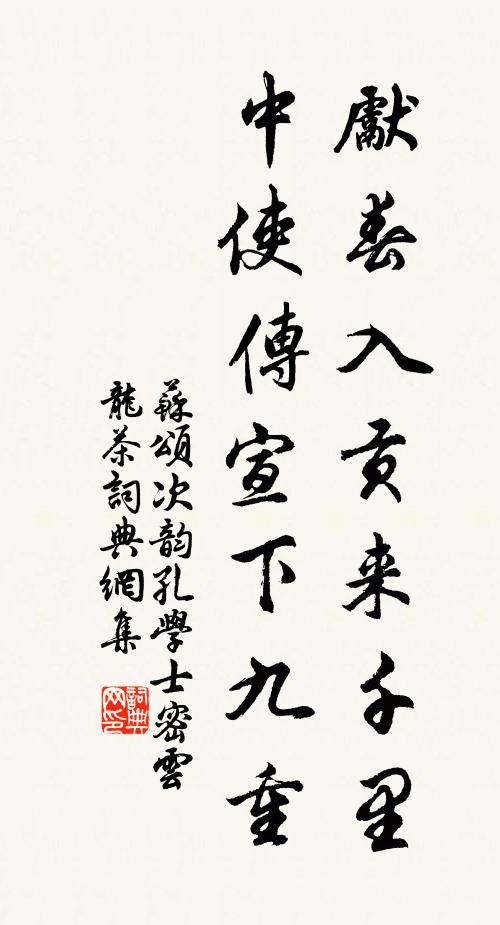 獻春入貢来千里
中使傳宣下九重
蘇頌次韵孔學士密雲
龍茶詞典網集
詞典网印